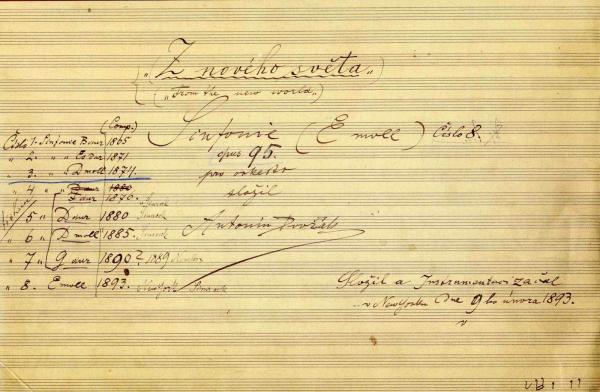 „Z nového světa“
(„From the new world“)
Sinfonie (E moll) Číslo 8.
opus 95.
pro orkestr
složil
Antonín Dvořák
(Comp.)
Číslo 1. Sinfonie B dur 1865
„ 2. „ Es dur 1871
„ 3. „ D moll 1874.
„ 4 „ D dur 1880
F dur 1870.
„ 5 „ D dur 1880
„ 6 „ D moll 1885.
„ 7 „ G dur 1890? 1889
„ 8. E moll 1893. New York
Složil a Instrumentaci začal
v New Yorku dne 9ho února 1893.